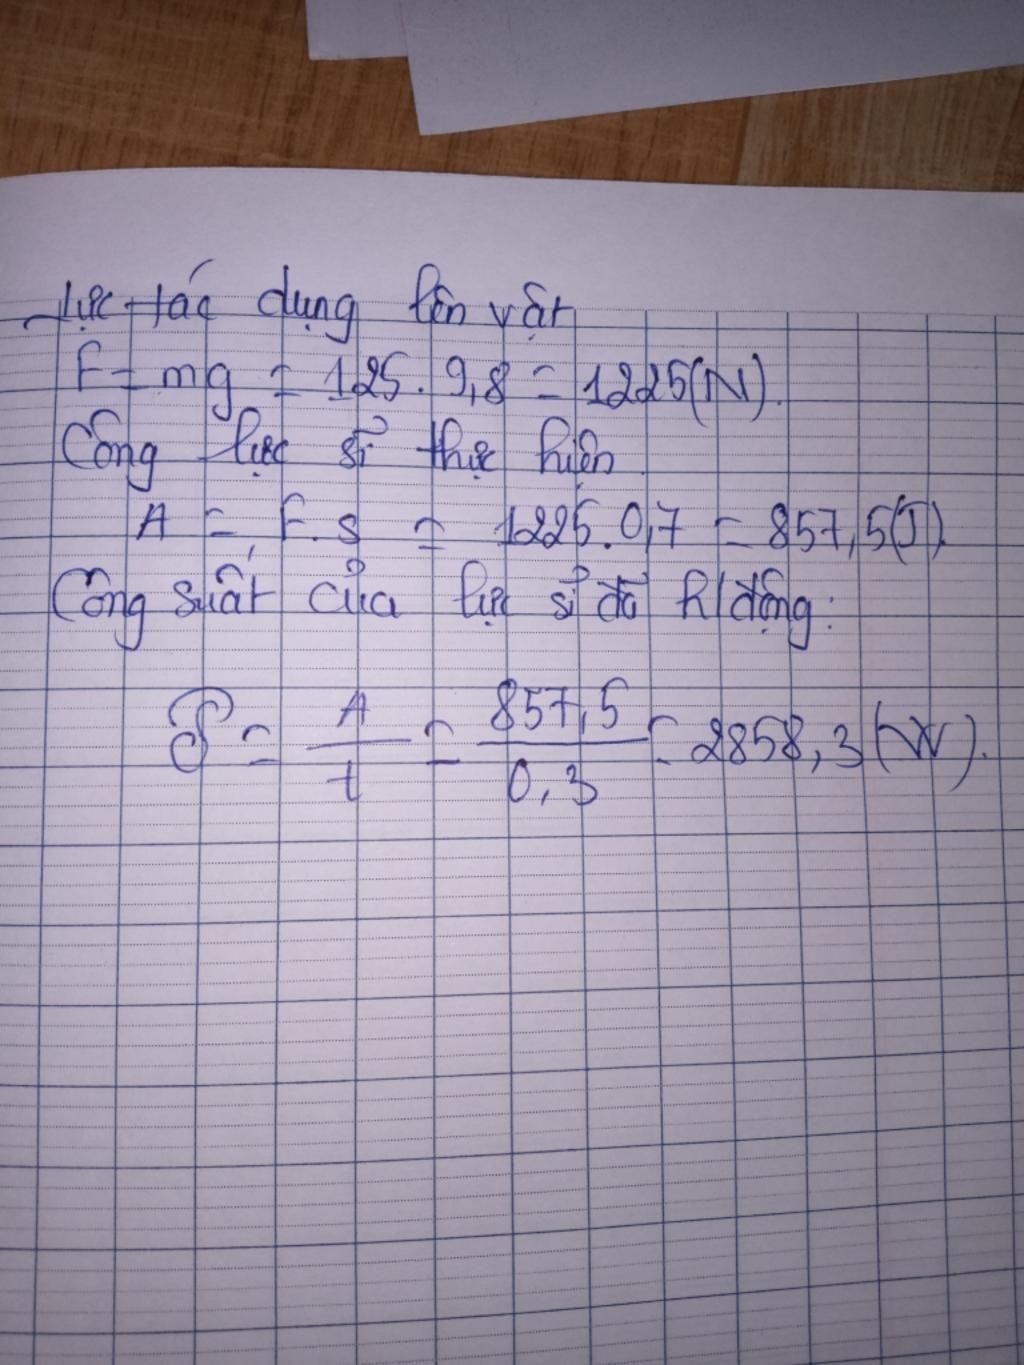 Lực tác dụng lên vật
F = mg = 125 . 9,8 = 1225 (N).
Công lực sĩ thực hiện
A = F. s = 1225. 0,7 = 857,5 (J).
Công suất của lực sĩ đã h/động:
𝒫 = A/t = 857,5/0,3 = 2858,3 (W).